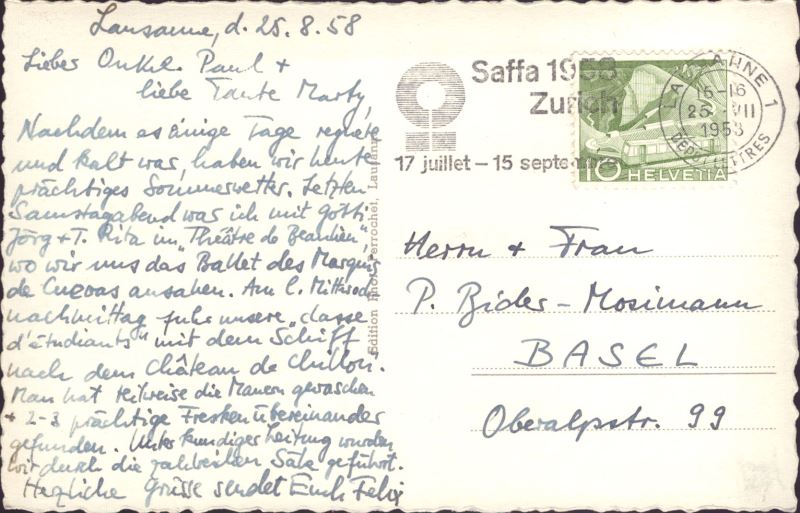 Lausanne, d. 25.8.58
Lieber Onkel Paul +
liebe Tante Marty,
Nachdem es einige Tage regnete
und kalt war, haben wir heute
prächtiges Sommerwetter. Letzten
Samstagabend war ich mit Götti
Jörg + T. Rita im "Théâtre de Beaulieu",
wo wir uns das Ballet des Marquis
de Cuevas ansahen. Am l. Mittwoch-
nachmittag fuhr unsere "classe
d'étudiants" mit dem Schiff
nach dem Château de Chillon.
Man hat teilweise die Mauern gewaschen
+ 2-3 prächtige Fresken übereinander
gefunden. Unter kundiger Leitung wurden
wir durch die zahlreichen Säle geführt.
Herzliche Grüsse sendet Euch Felix
Edition phot. Perrochet, Lausanne
Saffa 1958
Zurich
17 juillet – 15 septembre
LAUSANNE 1
15-16
25. VIII
1958
DEPOT LETTRES
10 HELVETIA
Herrn + Frau
P. Bider-Mosimann
BASEL
Oberalpstr. 99